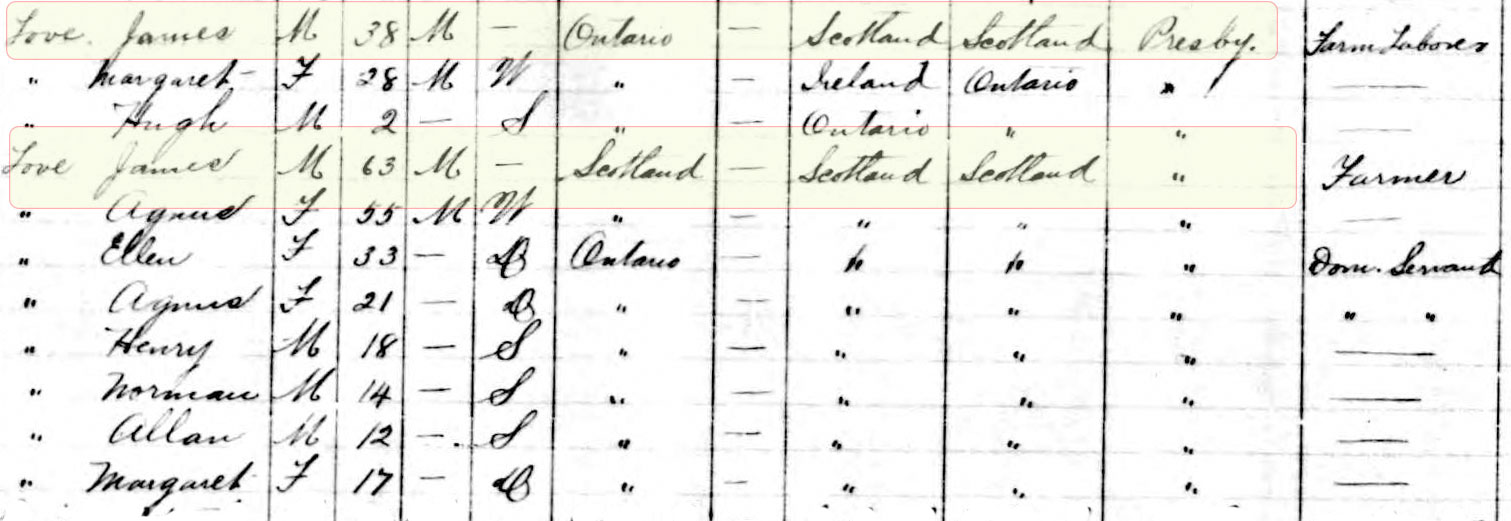 Love. James M 38 M — Ontario — Scotland Scotland Presby. Farm Laborer
" Margaret F 28 M W " — Ireland Ontario " —
" Hugh M 2 — S " — Ontario " " —
Love James M 63 M — Scotland — Scotland Scotland " Farmer
" Agnus F 55 M W " — " " " —
" Ellen F 33 — D Ontario — " " " Dom. Servant
" Agnus F 21 — D " — " " " " "
" Henry M 18 — S " — " " " —
" Norman M 14 — S " — " " " —
" Allan M 12 — S " — " " " —
" Margaret F 17 — D " — " " " —